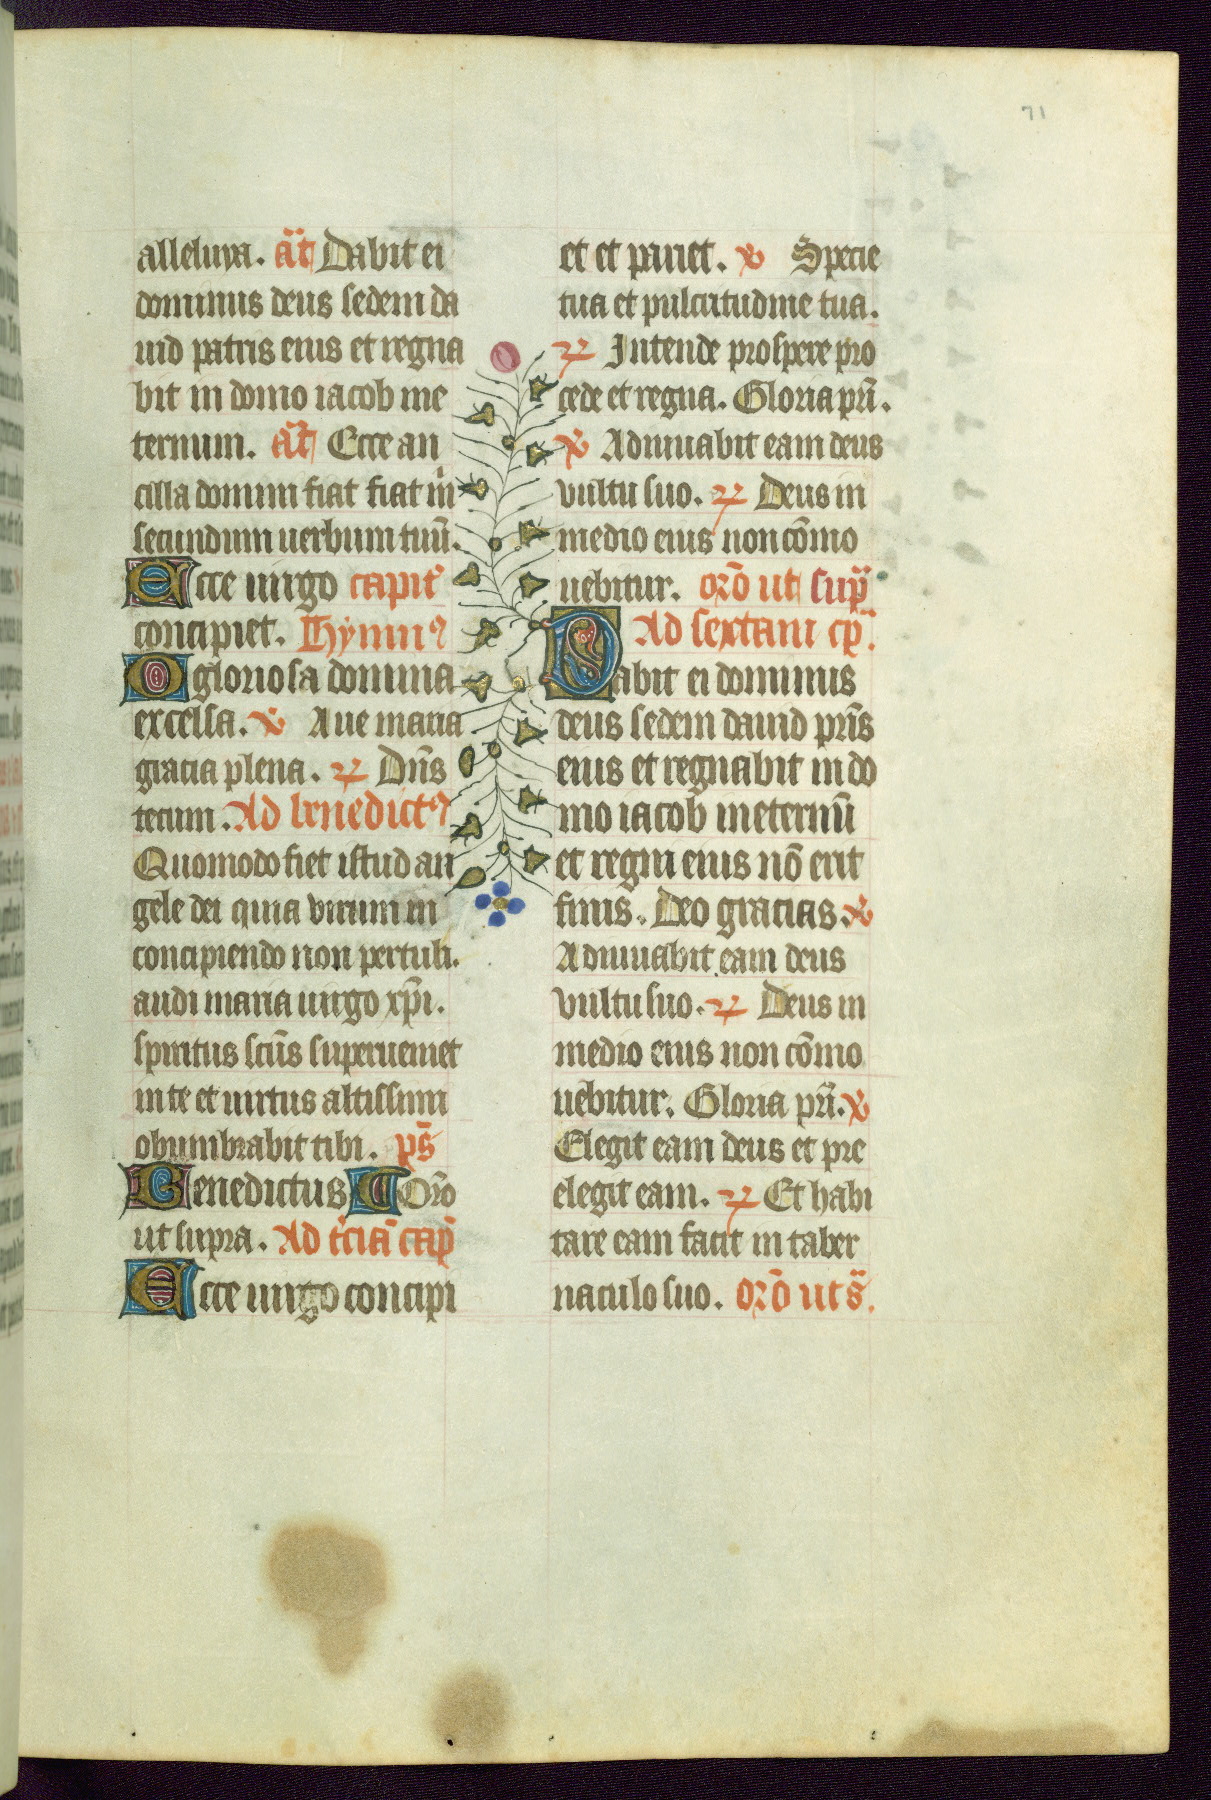 71
alleluya. añt Dabit ei
dominus deus sedem da
uid patris eius et regna
bit in domo iacob in e
ternum. añt Ecce an
cilla domini fiat fiat m̄
secundum uerbum tuū.
Ecce uirgo capit'
concipiet. Hymnꝰ
O gloriosa domina
excelsa. ℣ Aue maria
gracia plena. ℟ Dn̄s
tecum. Ad benedictꝰ
Quomodo fiet istud an
gele dei quia virum in
concipiendo non pertuli.
audi maria uirgo xp̄i.
spiritus sc̄us superueniet
in te et uirtus altissimi
obumbrabit tibi. ps̄
Benedictus Orō
ut supra. Ad t'ciā cap̄
Ecce uirgo concipi
et et pariet. ℣ Specie
tua et pulcritudine tua.
℟ Intende prospere pro
cede et regna. Gloria pr̄i.
℣ Adiuuabit eam deus
vultu suo. ℟ Deus in
medio eius non cōmo
uebitur. orō ut sup̄
Ad sextam cp̄.
Dabit ei dominus
deus sedem dauid pr̄is
eius et regnabit in do
mo iacob in eternū
et regni eius nō erit
finis. Deo gracias. ℣
Adiuuabit eam deus
vultu suo. ℟ Deus in
medio eius non cōmo
uebitur. Gloria pr̄i. ℣
Elegit eam deus et pre
elegit eam. ℟ Et habi
tare eam facit in taber
naculo suo. orō ut s̄.